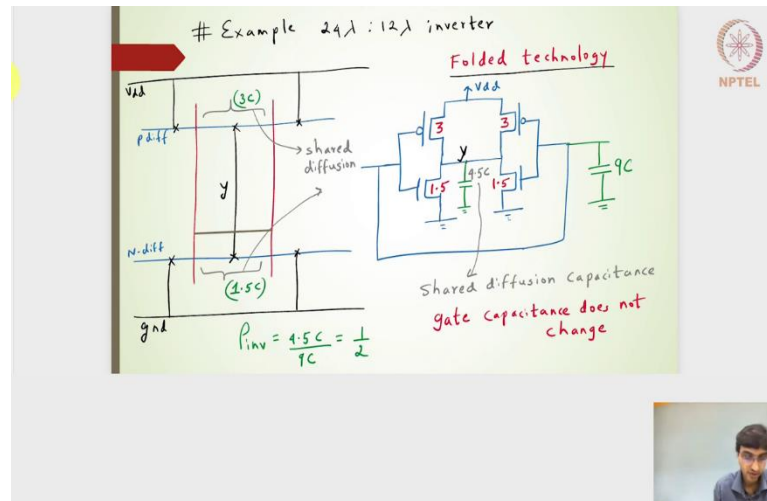 # Example 24λ : 12λ inverter
Folded technology
NPTEL
Vdd
(3C)
P diff
shared
diffusion
y
N-diff
(1.5C)
gnd
Pinv = 4.5C/9C = 1/2
Vdd
3
3
y
4.5C
1.5
1.5
9C
Shared diffusion capacitance
gate capacitance does not
change